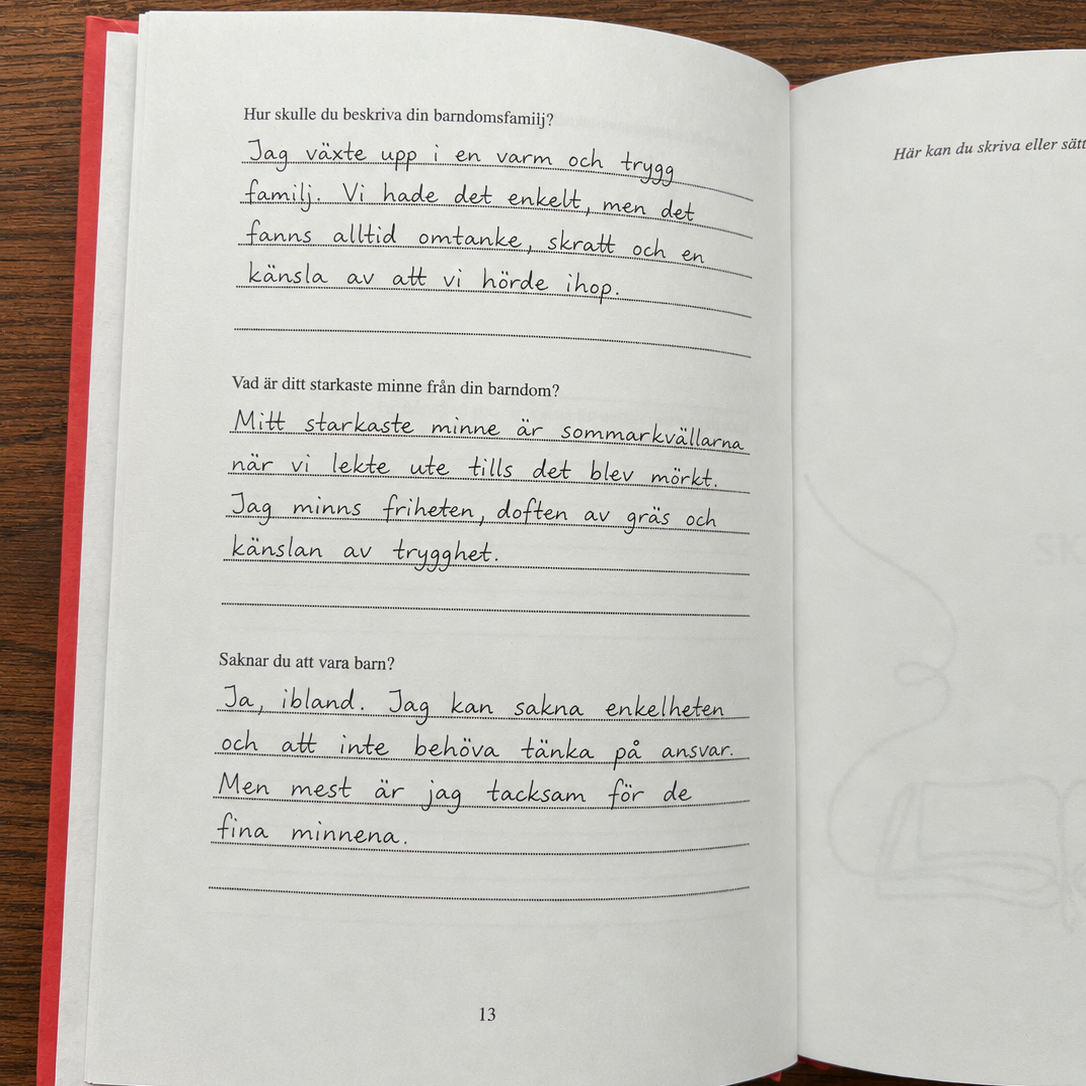 Hur skulle du beskriva din barndomsfamilj?
Jag växte upp i en varm och trygg
familj. Vi hade det enkelt, men det
fanns alltid omtanke, skratt och en
känsla av att vi hörde ihop.
Vad är ditt starkaste minne från din barndom?
Mitt starkaste minne är sommarkvällarna
när vi lekte ute tills det blev mörkt.
Jag minns friheten, doften av gräs och
känslan av trygghet.
Saknar du att vara barn?
Ja, ibland. Jag kan sakna enkelheten
och att inte behöva tänka på ansvar.
Men mest är jag tacksam för de
fina minnena.
13
Här kan du skriva eller sätt